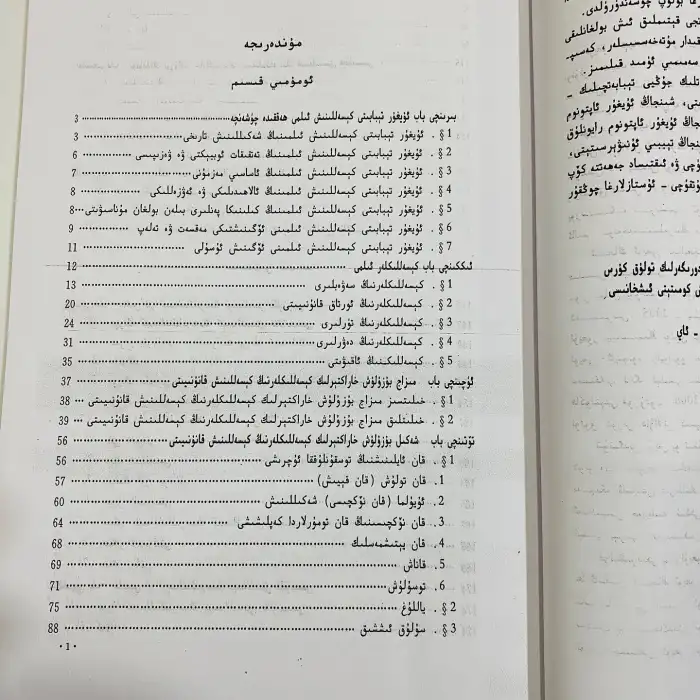 مۇندەرىجە
ئومۇمىي قىسىم
بىرىنچى باب ئۇيغۇر تېبابىتى كېسەللىنىش ئىلمى ھەققىدە چۈشەنچە 3
§ 1. ئۇيغۇر تېبابىتى كېسەللىنىش ئىلمىنىڭ شەكىللىنىش تارىخى 3
§ 2. ئۇيغۇر تېبابىتى كېسەللىنىش ئىلمىنىڭ تەتقىقات ئوبيېكتى ۋە ۋەزىپىسى 6
§ 3. ئۇيغۇر تېبابىتى كېسەللىنىش ئىلمىنىڭ ئاساسىي مەزمۇنى 7
§ 4. ئۇيغۇر تېبابىتى كېسەللىنىش ئىلمىنىڭ ئالاھىدىلىكى ۋە ئەۋزەللىكى 8
§ 5. ئۇيغۇر تېبابىتى كېسەللىنىش ئىلمىنىڭ كىلىنىكا پەنلىرى بىلەن بولغان مۇناسىۋىتى 8
§ 6. ئۇيغۇر تېبابىتى كېسەللىنىش ئىلمىنى ئۆگىنىشتىكى مەقسەت ۋە تەلەپ 9
§ 7. ئۇيغۇر تېبابىتى كېسەللىنىش ئىلمىنى ئۆگىنىش ئۇسۇلى 11
ئىككىنچى باب كېسەللىكلەر ئىلمى 12
§ 1. كېسەللىكلەرنىڭ سەۋەبلىرى 13
§ 2. كېسەللىكلەرنىڭ ئورتاق قانۇنىيىتى 20
§ 3. كېسەللىكلەرنىڭ تۈرلىرى 24
§ 4. كېسەللىكلەرنىڭ دەۋرلىرى 31
§ 5. كېسەللىكنىڭ ئاقىۋىتى 35
ئۈچىنچى باب مىزاج بۇزۇلۇش خاراكتېرلىك كېسەللىكلەرنىڭ كېسەللىنىش قانۇنىيىتى 37
§ 1. خىلىتسىز مىزاج بۇزۇلۇش خاراكتېرلىك كېسەللىكلەرنىڭ كېسەللىنىش قانۇنىيىتى 38
§ 2. خىلىتلىق مىزاج بۇزۇلۇش خاراكتېرلىك كېسەللىكلەرنىڭ كېسەللىنىش قانۇنىيىتى 39
تۆتىنچى باب شەكىل بۇزۇلۇش خاراكتېرلىك كېسەللىكلەرنىڭ كېسەللىنىش قانۇنىيىتى 56
§ 1. قان ئايلىنىشنىڭ توسقۇنلۇققا ئۇچرىشى 56
1. قان تولۇش (قان قېيىش) 57
2. ئۇيۇلما (قان نۆكچىسى) شەكىللىنىش 60
3. قان نۆكچىسىنىڭ قان تومۇرلاردا كەپلىشىشى 64
4. قان يېتىشمەسلىك 68
5. قاناش 69
6. توسۇلۇش 71
§ 2. ياللۇغ 75
§ 3. سۇلۇق ئىششىق 88
· 1 ·
چۈشەندۈرۈلدى.
قېتىملىق ئىش بولغانلىقى
مۇتەخەسسىسلەر، كەسىپ
سەمىمىي ئۈمىد قىلىمىز.
شىنجاڭ ئۇيغۇر ئاپتونوم
ئۇيغۇر ئاپتونوم رايونلۇق
تېببىي ئۇنىۋېرسىتېتى،
ۋە ئىقتىساد جەھەتتە كۆپ
ئۇستازلارغا چوڭقۇر
تولۇق كۇرس
كومىتېتى ئىشخانىسى
- ئاي